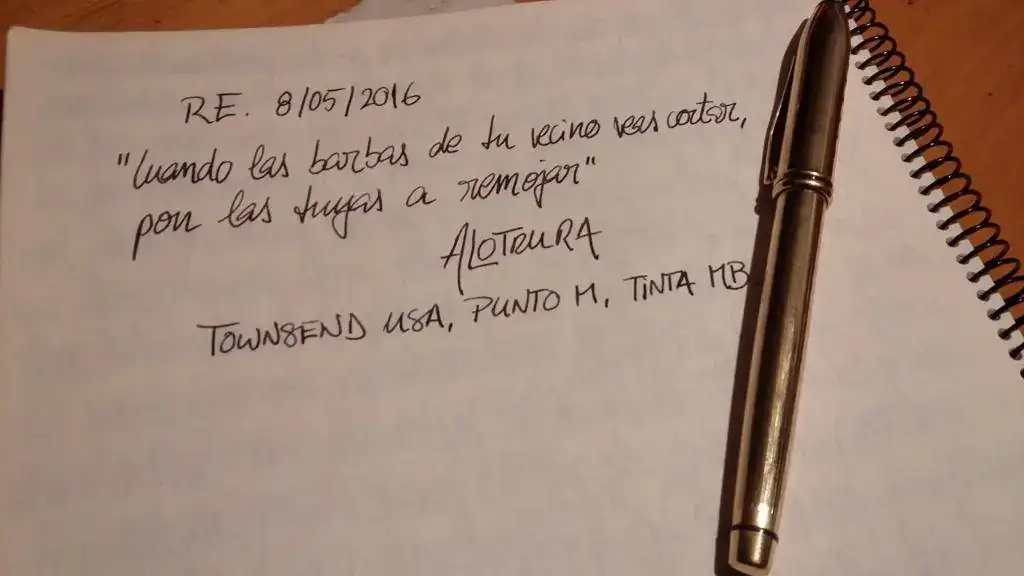 RE. 8/05/2016
"Cuando las barbas de tu vecino veas cortar,
pon las tuyas a remojar"
ALOTRURA
TOWNSEND USA, PUNTO M, TINTA MB